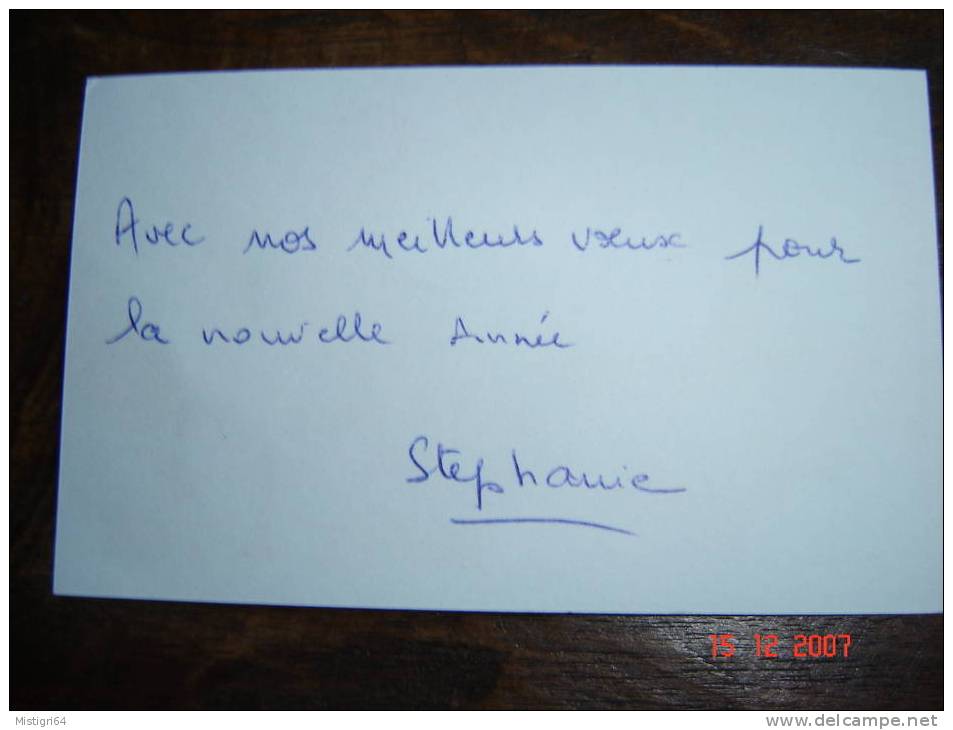 Avec nos meilleurs vœux pour
la nouvelle Année
Stephanie
15 12 2007
Mistigri64
www.delcampe.net